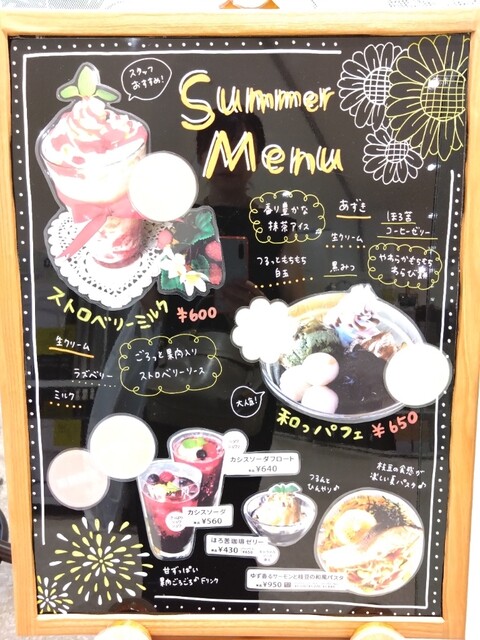 スタッフ
おすすめ!
Summer
Menu
香り豊かな
抹茶アイス
あずき
ほろ苦
コーヒーゼリー
生クリーム
つるっともちもち
白玉
黒みつ
やわらかもちもち
わらび餅
ストロベリーミルク ¥600
生クリーム
ラズベリー
ミルク
ごろっと果肉入り
ストロベリーソース
大人気!
和っパフェ ¥650
カシスソーダフロート
¥640
カシスソーダ
¥560
甘ずっぱい
果肉ごろごろ♪ドリンク
つるんと
ひんやり♪
ほろ苦珈琲ゼリー
¥430
枝豆の食感が
楽しい夏パスタ♪
ゆず香るサーモンと枝豆の和風パスタ
¥950